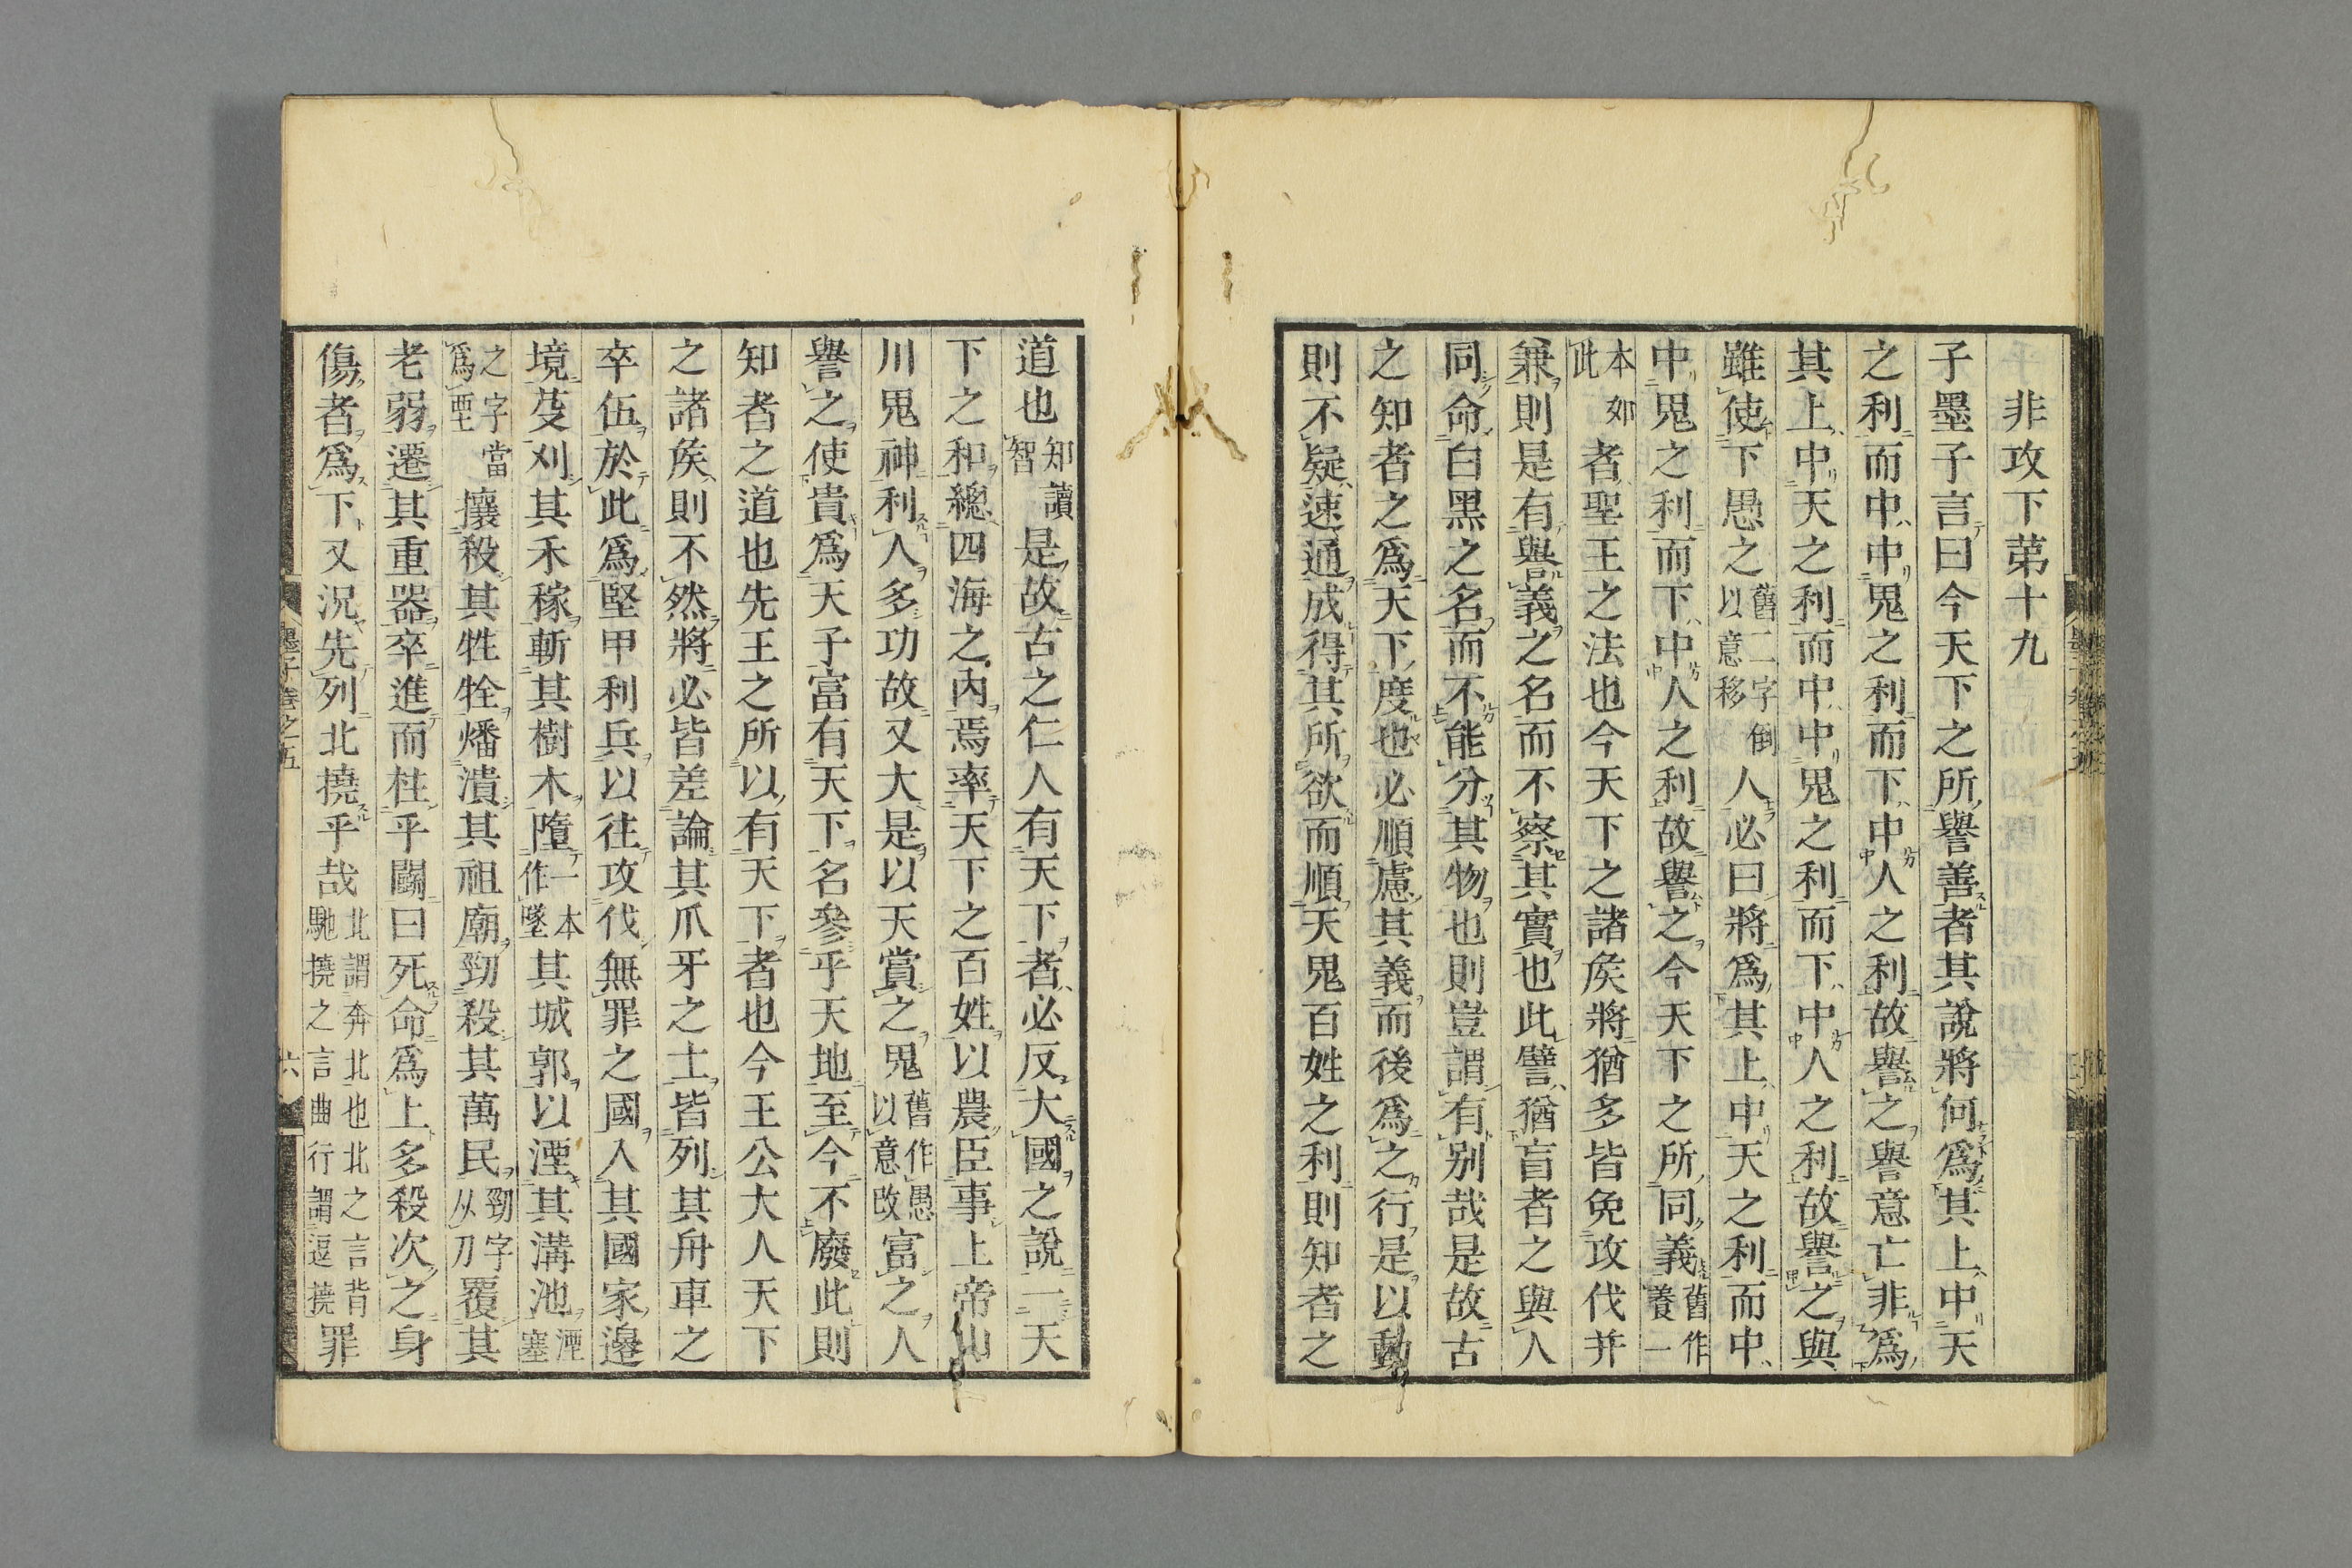 非攻下苐十九
子墨子言曰今天下之所譽善者其說將何爲其上中天
之利而中中鬼之利而下中人之利故譽之譽意亡非爲
其上中天之利而中中鬼之利而下中人之利故譽之與
雖使下愚之舊二字倒以意移人必曰將爲其上中天之利而中
中鬼之利而下中人之利故譽之今天下之所同義舊作養一
本如此者聖王之法也今天下之諸矦將猶多皆免攻伐并
兼則是有譽義之名而不察其實也此譬猶盲者之與人
同命白黑之名而不能分其物也則豈謂有别哉是故古
之知者之爲天下度也必順慮其義而後爲之行是以動
則不疑速通成得其所欲而順天鬼百姓之利則知者之
道也知讀智是故古之仁人有天下者必反大國之說一天
下之和總四海之內焉率天下之百姓以農臣事上帝山
川鬼神利人多功故又大是以天賞之鬼舊作愚以意改富之人
譽之使貴爲天子富有天下名參乎天地至今不廢此則
知者之道也先王之所以有天下者也今王公大人天下
之諸矦則不然將必皆差論其爪牙之士皆列其舟車之
卒伍於此爲堅甲利兵以往攻伐無罪之國入其國家邊
境芟刈其禾稼斬其樹木墮一本作墜其城郭以湮其溝池湮塞
之字當爲垔攘殺其牲牷燔潰其祖廟勁殺其萬民勁字从刀覆其
老弱遷其重器卒進而柱乎鬭曰死命爲上多殺次之身
傷者爲下又況先列北撓乎哉北謂奔北也北之言背馳撓之言曲行謂逗撓罪
墨子卷之五
六